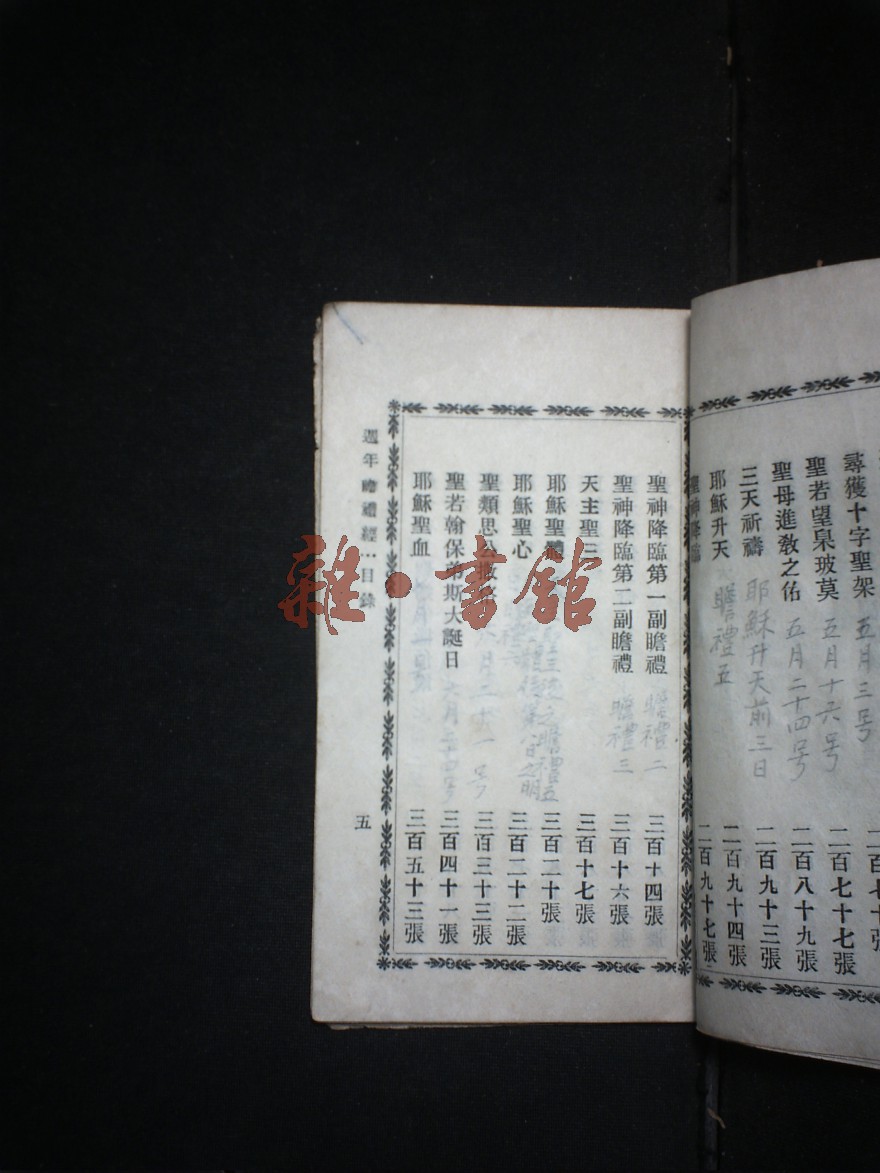 尋獲十字聖架 五月三号
聖若望臬玻莫 五月十六号 二百七十七張
聖母進教之佑 五月二十四号 二百八十九張
三天祈禱 耶穌升天前三日 二百九十三張
耶穌升天 瞻禮五 二百九十四張
聖神降臨 二百九十七張
聖神降臨第一副瞻禮 瞻禮二 三百十四張
聖神降臨第二副瞻禮 瞻禮三 三百十六張
天主聖三 三百十七張
耶穌聖體 三百二十張
耶穌聖心 三百二十二張
聖類思公 三百三十三張
聖若翰保弟斯大誕日 六月二十四号 三百四十一張
耶穌聖血 三百五十三張
週年瞻禮經‥目錄
五
雜·書館